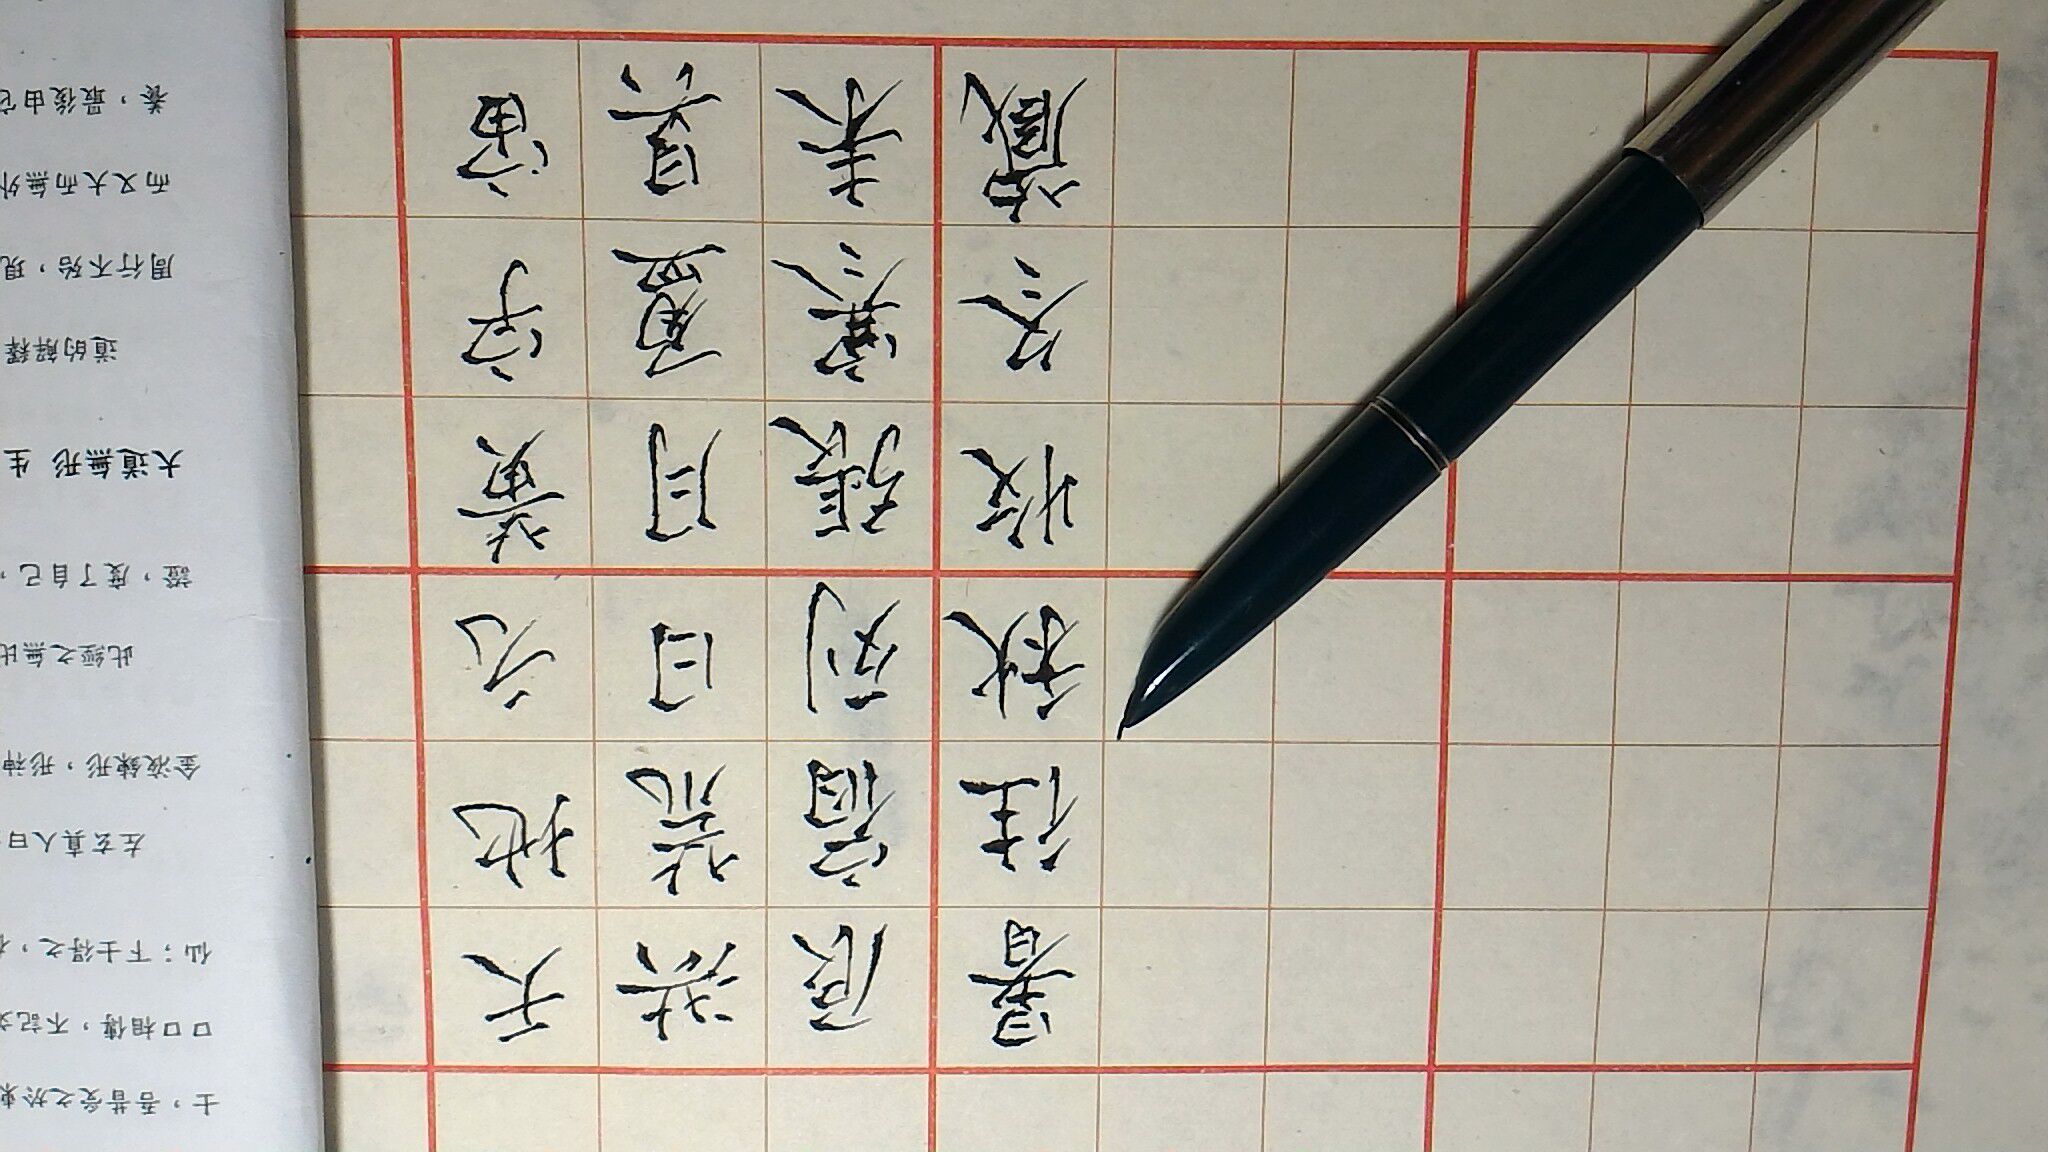 天地玄黃宇宙
洪荒日月盈昃
辰宿列張寒來
暑往秋收冬藏
士，吾昔受之於東
口口相傳，不記文
仙；下士得之，
左玄真人曰
金液鍊形，形神
此經之無比
證，度了自己，
大道無形 生
道的解釋
周行不殆，現
而又大而無外
養，最後由它